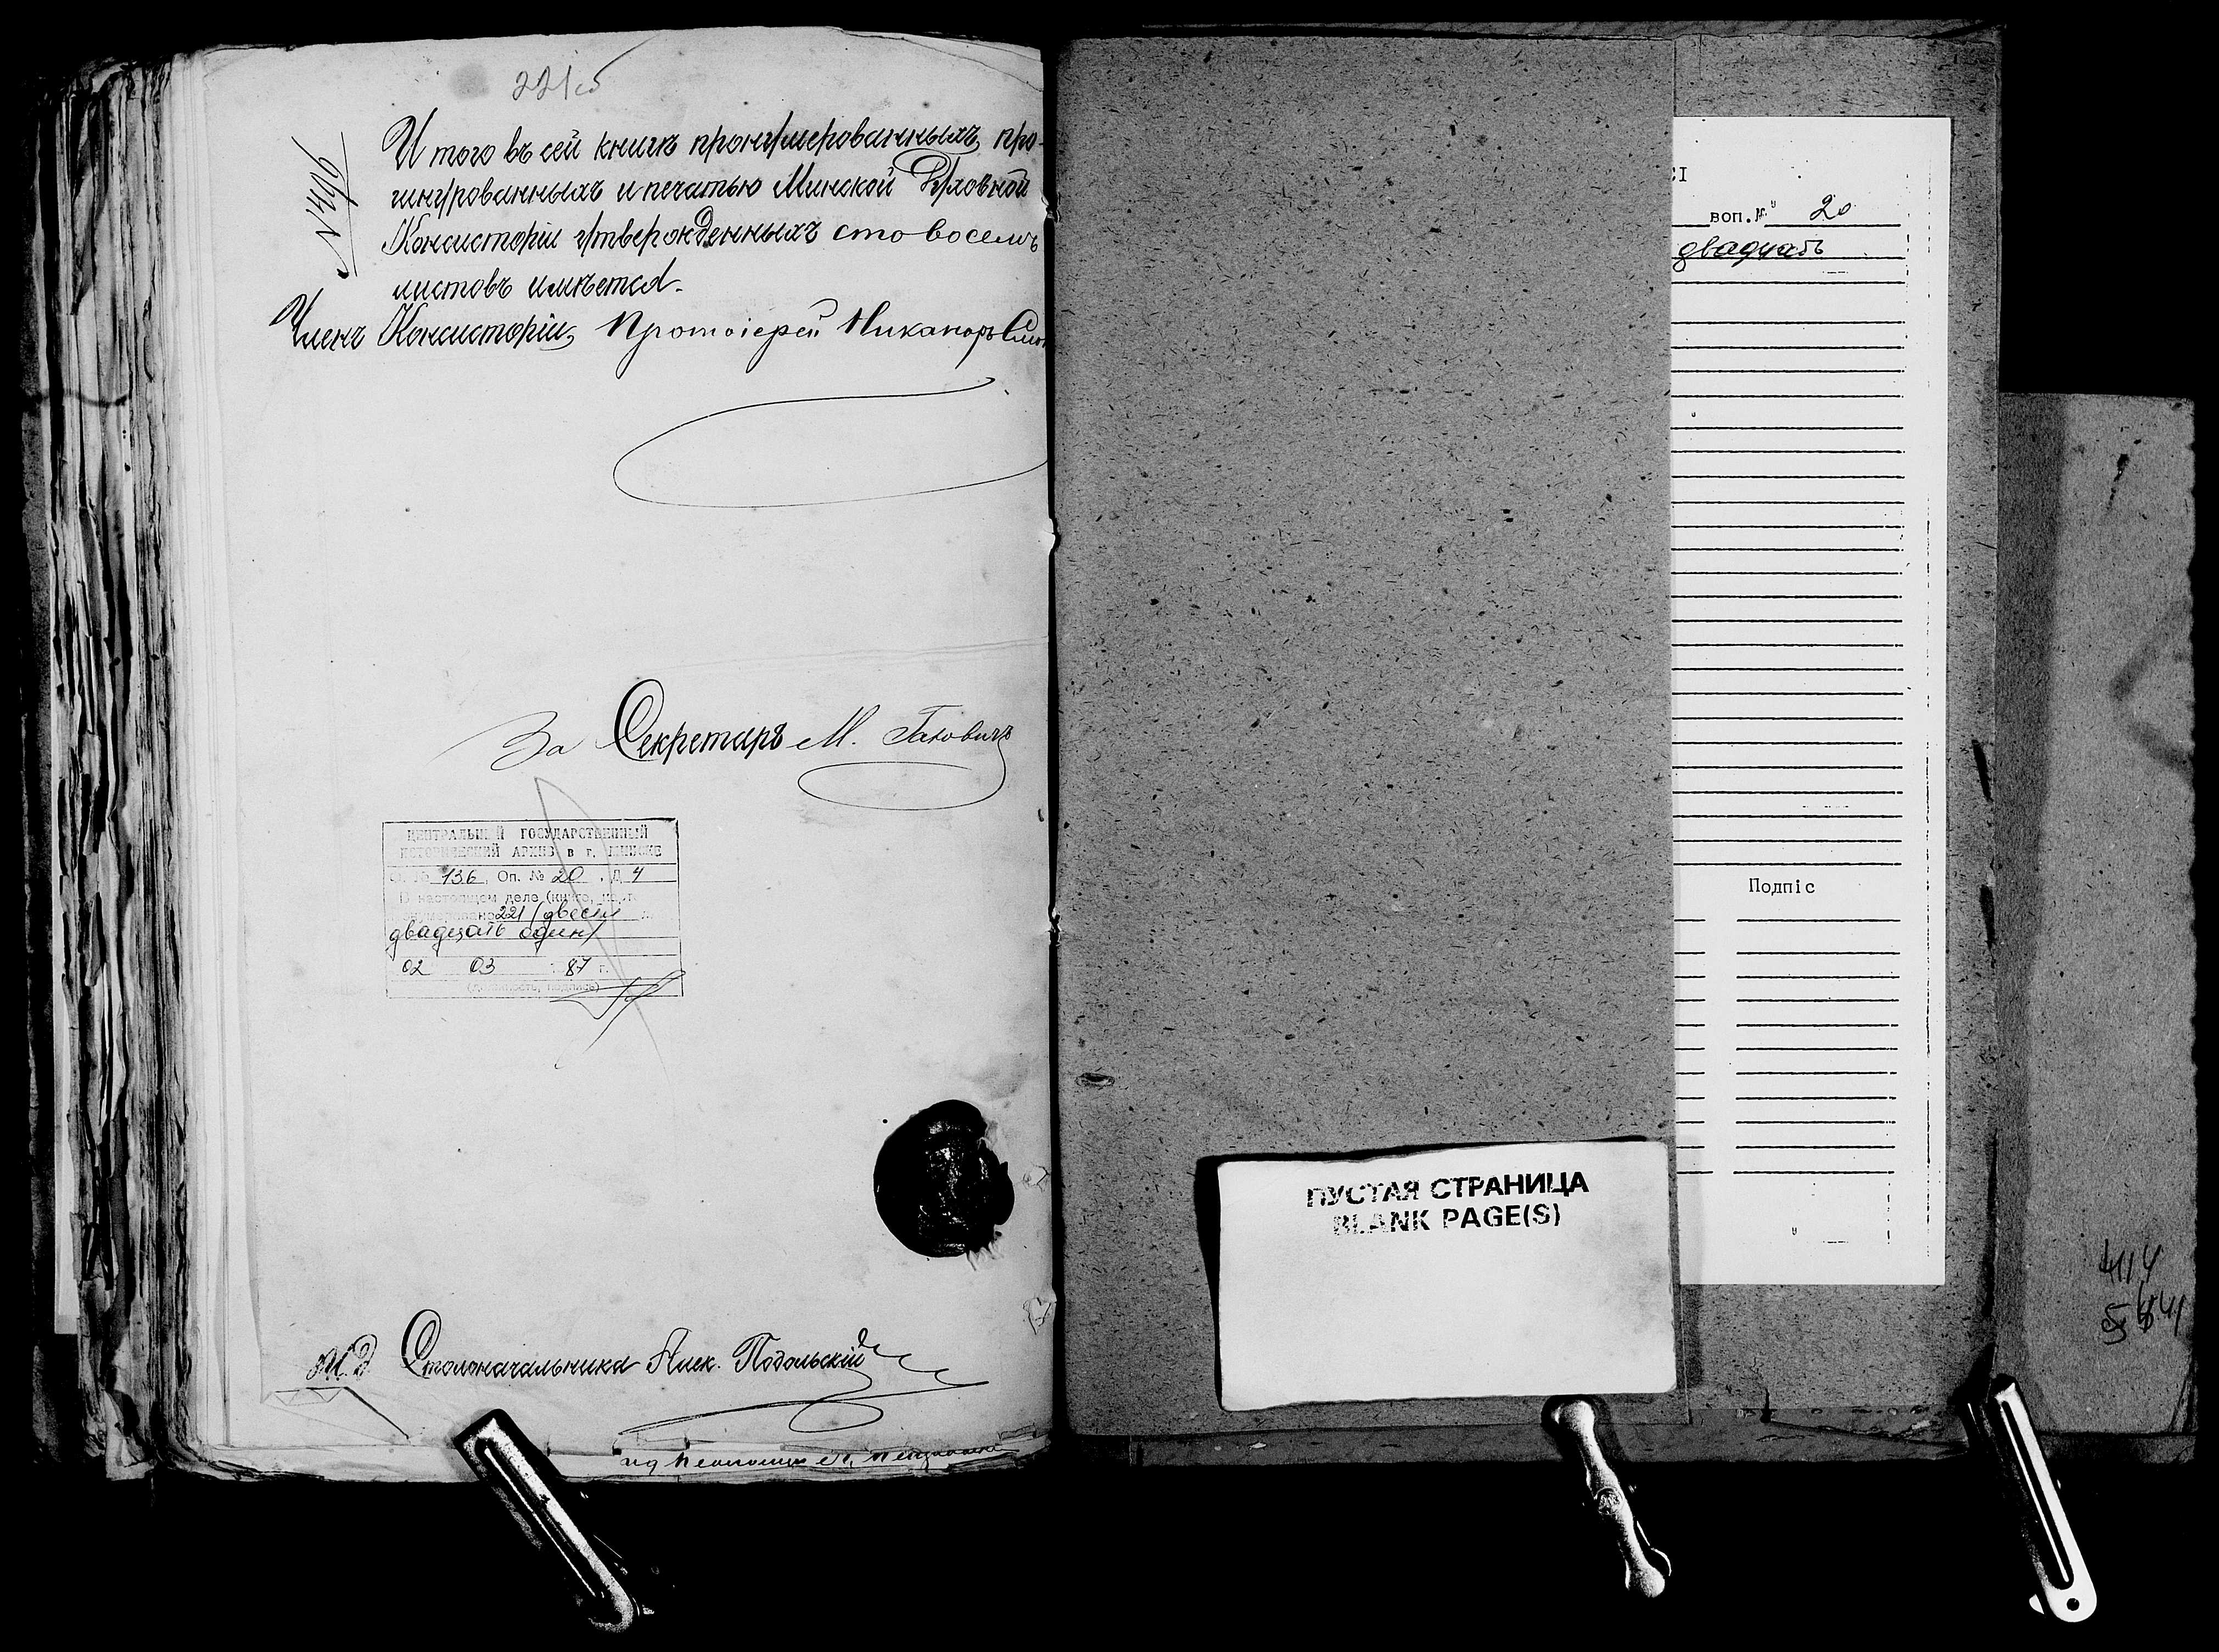 221об
№ 406
Итого въ сей книгѣ пронумерованныхъ, про-
шнурованныхъ и печатью Минской Духовной
Консисторіи утвержденныхъ сто восемь
листовъ имѣется.
Членъ Консисторіи, Протоіерей Никаноръ
За Секретаря М.
ЦЕНТРАЛЬНЫЙ ГОСУДАРСТВЕННЫЙ
ИСТОРИЧЕСКИЙ АРХИВ в г. МИНСКЕ
Ф. № 136, Оп. № 20, Д. 4
В настоящем деле (книге,
пронумеровано 221 /двести
двадцать один/
02 03 1987 г.
(должность, подпись)
И.д. Столоначальника Алек. Подольскій
воп. № 20
двадцать
Подпіс
ПУСТАЯ СТРАНИЦА
BLANK PAGE(S)